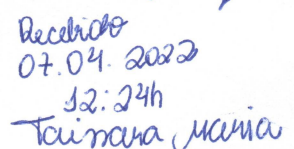 Recebido
07.04.2022
12:24h
Taissara Maria